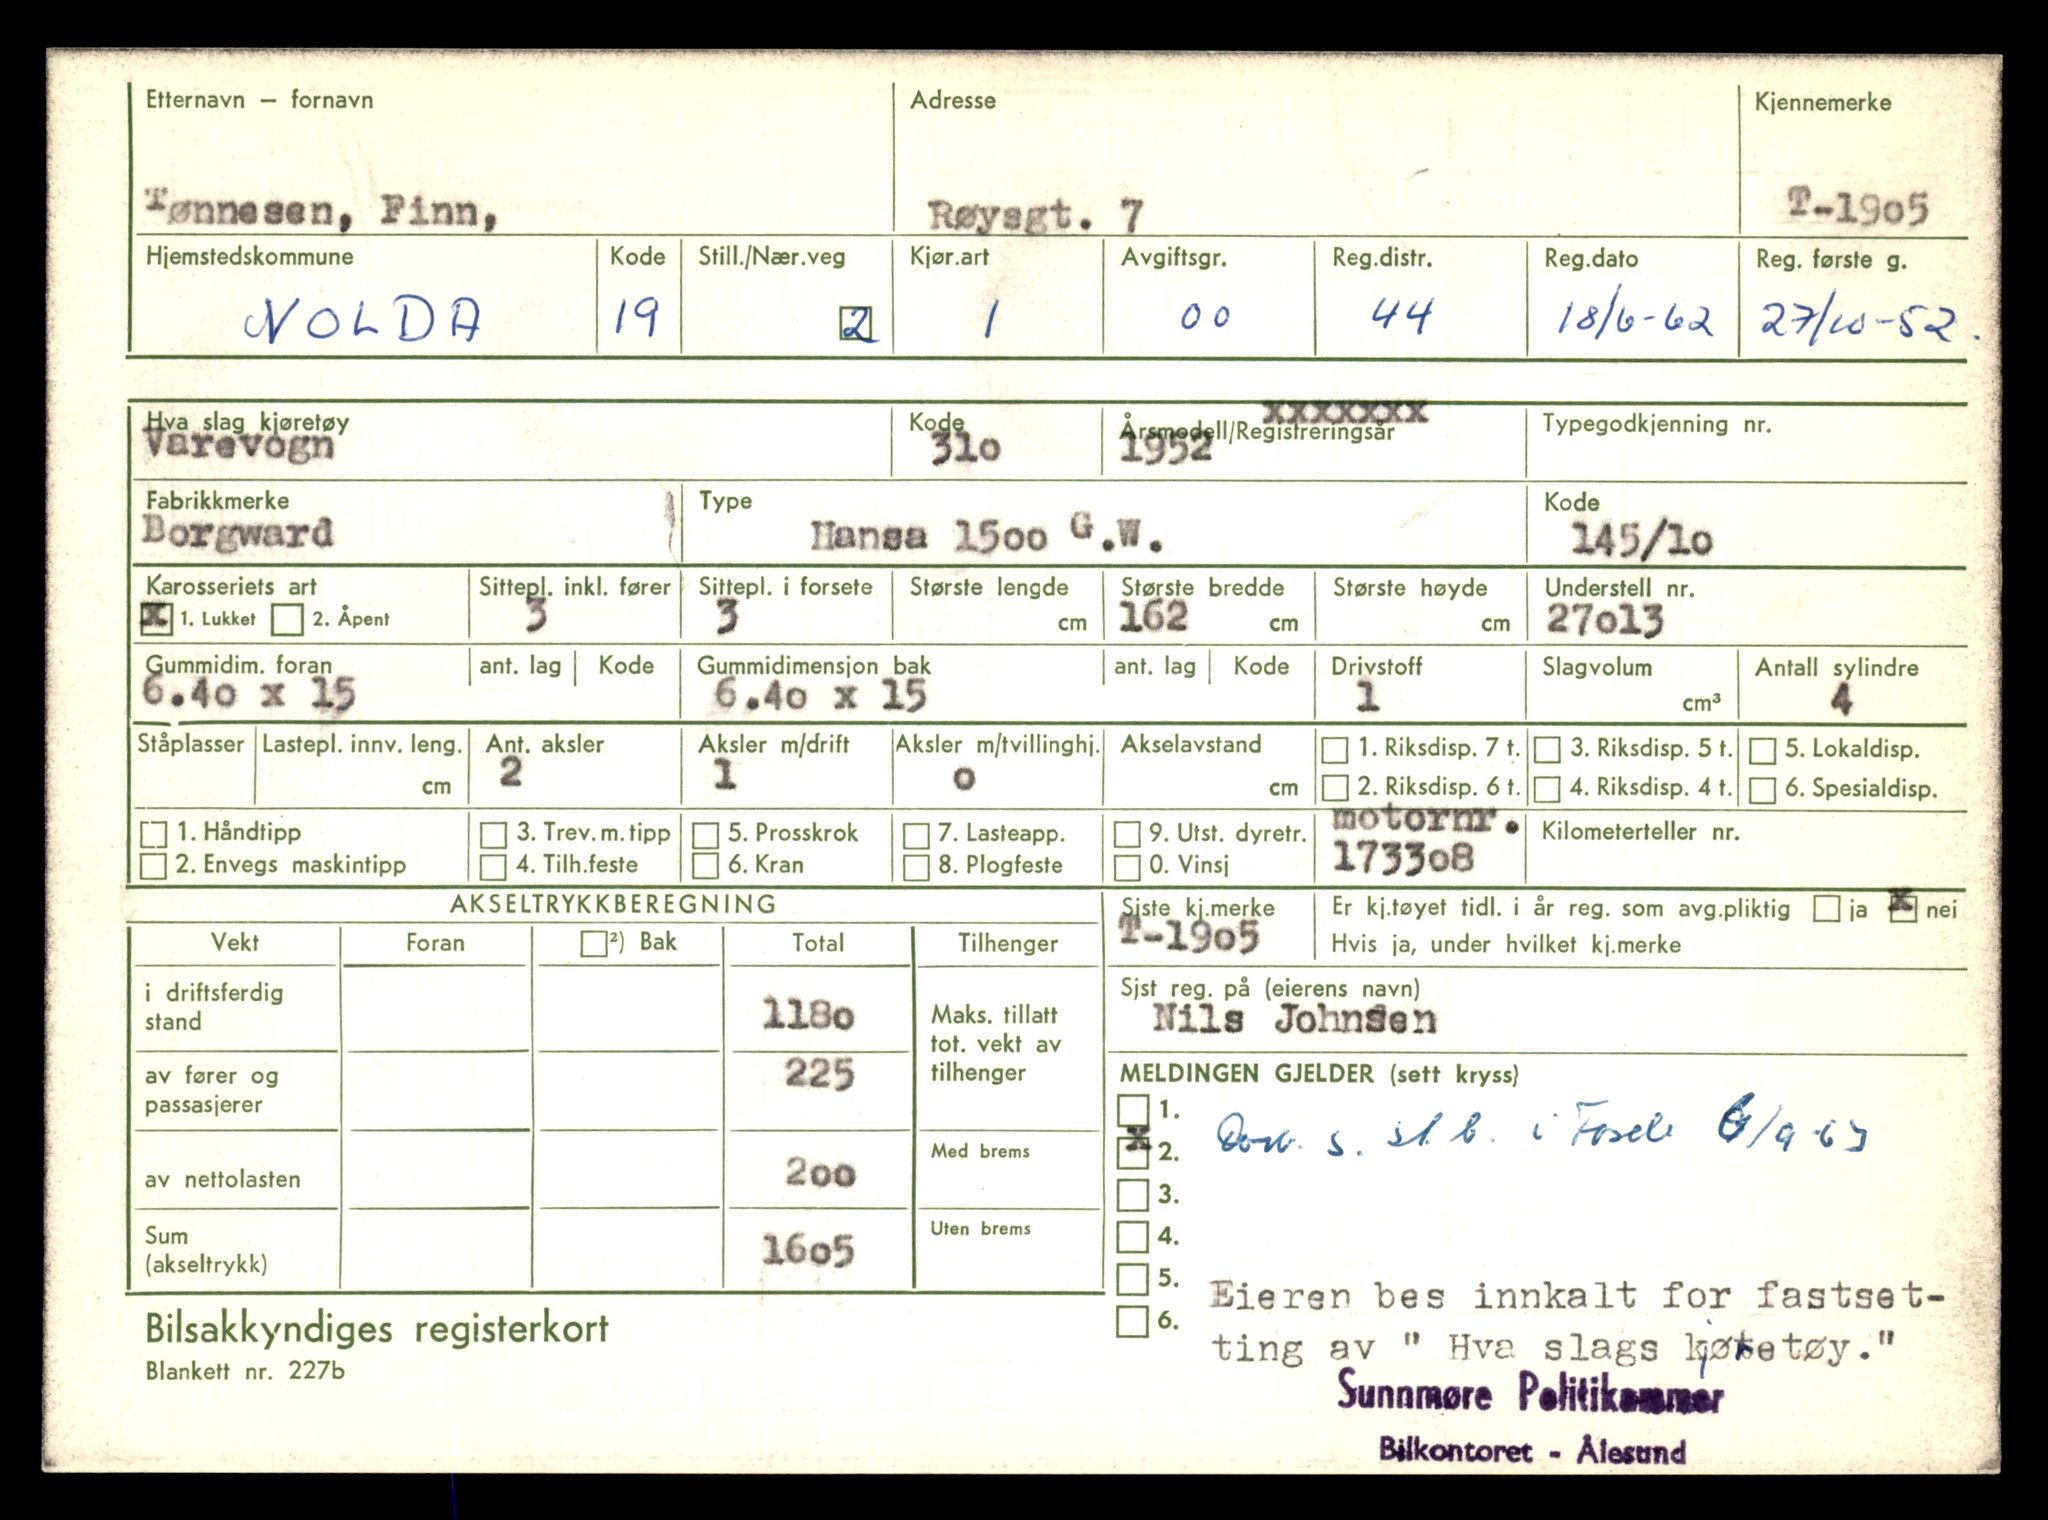 Etternavn – fornavn Adresse Kjennemerke
Tønnesen, Finn, Røysgt. 7 T-19o5
Hjemstedskommune Kode Still./Nær.veg Kjør.art Avgiftsgr. Reg.distr. Reg.dato Reg. første g.
NOLDA 19 2 1 00 44 18/6-62 27/10-52.
xxxxxxx
Hva slag kjøretøy Kode Årsmodell/Registreringsår Typegodkjenning nr.
Varevogn 31o 1952
Fabrikkmerke Type Kode
Borgward Hansa 15oo G.W. 145/1o
Karosseriets art Sittepl. inkl. fører Sittepl. i forsete Største lengde Største bredde Største høyde Understell nr.
x 1. Lukket 2. Åpent 3 3 cm 162 cm cm 27o13
Gummidim. foran ant. lag Kode Gummidimensjon bak ant. lag Kode Drivstoff Slagvolum Antall sylindre
6.4o x 15 6.4o x 15 1 cm³ 4
Ståplasser Lastepl. innv. leng. Ant. aksler Aksler m/drift Aksler m/tvillinghj. Akselavstand 1. Riksdisp. 7 t. 3. Riksdisp. 5 t. 5. Lokaldisp.
cm 2 1 o cm 2. Riksdisp. 6 t. 4. Riksdisp. 4 t. 6. Spesialdisp.
1. Håndtipp 3. Trev. m. tipp 5. Prosskrok 7. Lasteapp. 9. Utst. dyretr. motornr. Kilometerteller nr.
2. Envegs maskintipp 4. Tilh.feste 6. Kran 8. Plogfeste 0. Vinsj 1733o8
AKSELTRYKKBEREGNING
Vekt Foran ²) Bak Total Tilhenger
i driftsferdig stand 118o
Maks. tillatt
tot. vekt av
tilhenger
av fører og passasjerer 225
av nettolasten 2oo
Med brems
Sum
(akseltrykk) 16o5
Uten brems
Siste kj.merke Er kj.tøyet tidl. i år reg. som avg.pliktig ja x nei
T-19o5 Hvis ja, under hvilket kj.merke
Sist reg. på (eierens navn)
Nils Johnsen
MELDINGEN GJELDER (sett kryss)
1.
x 2. s. st. b. i 6/9-63
3.
4.
5.
6.
Eieren bes innkalt for fastset-
ting av " Hva slags kjøretøy."
Sunnmøre Politikammer
Bilkontoret - Ålesund
Bilsakkyndiges registerkort
Blankett nr. 227b